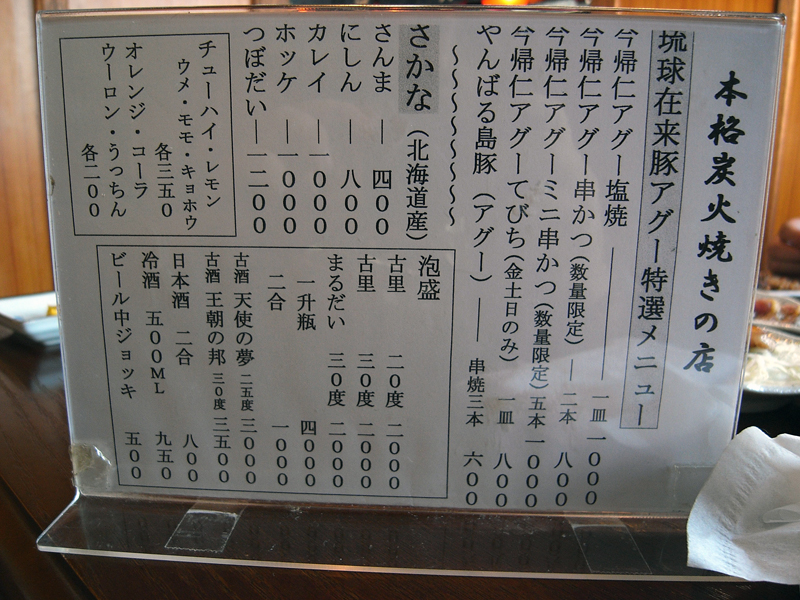 本格炭火焼きの店
琉球在来豚アグー特選メニュー
今帰仁アグー塩焼 ― 一皿 一〇〇〇
今帰仁アグー串かつ(数量限定) ― 二本 八〇〇
今帰仁アグーミニ串かつ(数量限定) 五本 一〇〇〇
今帰仁アグーてびち(金土日のみ) 一皿 八〇〇
やんばる島豚(アグー) ― 串焼三本 六〇〇
~~~~~~~~~~
さかな(北海道産)
さんま ― 四〇〇
にしん ― 八〇〇
カレイ ― 一〇〇〇
ホッケ ― 一〇〇〇
つぼだい ― 一二〇〇
チューハイ・レモン
ウメ・モモ・キョホウ
各三五〇
オレンジ・コーラ
ウーロン・うっちん
各二〇〇
泡盛
古里 二〇度 二〇〇〇
古里 三〇度 二〇〇〇
まるだい 三〇度 二〇〇〇
一升瓶 四〇〇〇
二合 一〇〇〇
古酒 天使の夢 二五度 三〇〇〇
古酒 王朝の邦 三〇度 三五〇〇
日本酒 二合 八〇〇
冷酒 五〇〇ML 九五〇
ビール中ジョッキ 五〇〇